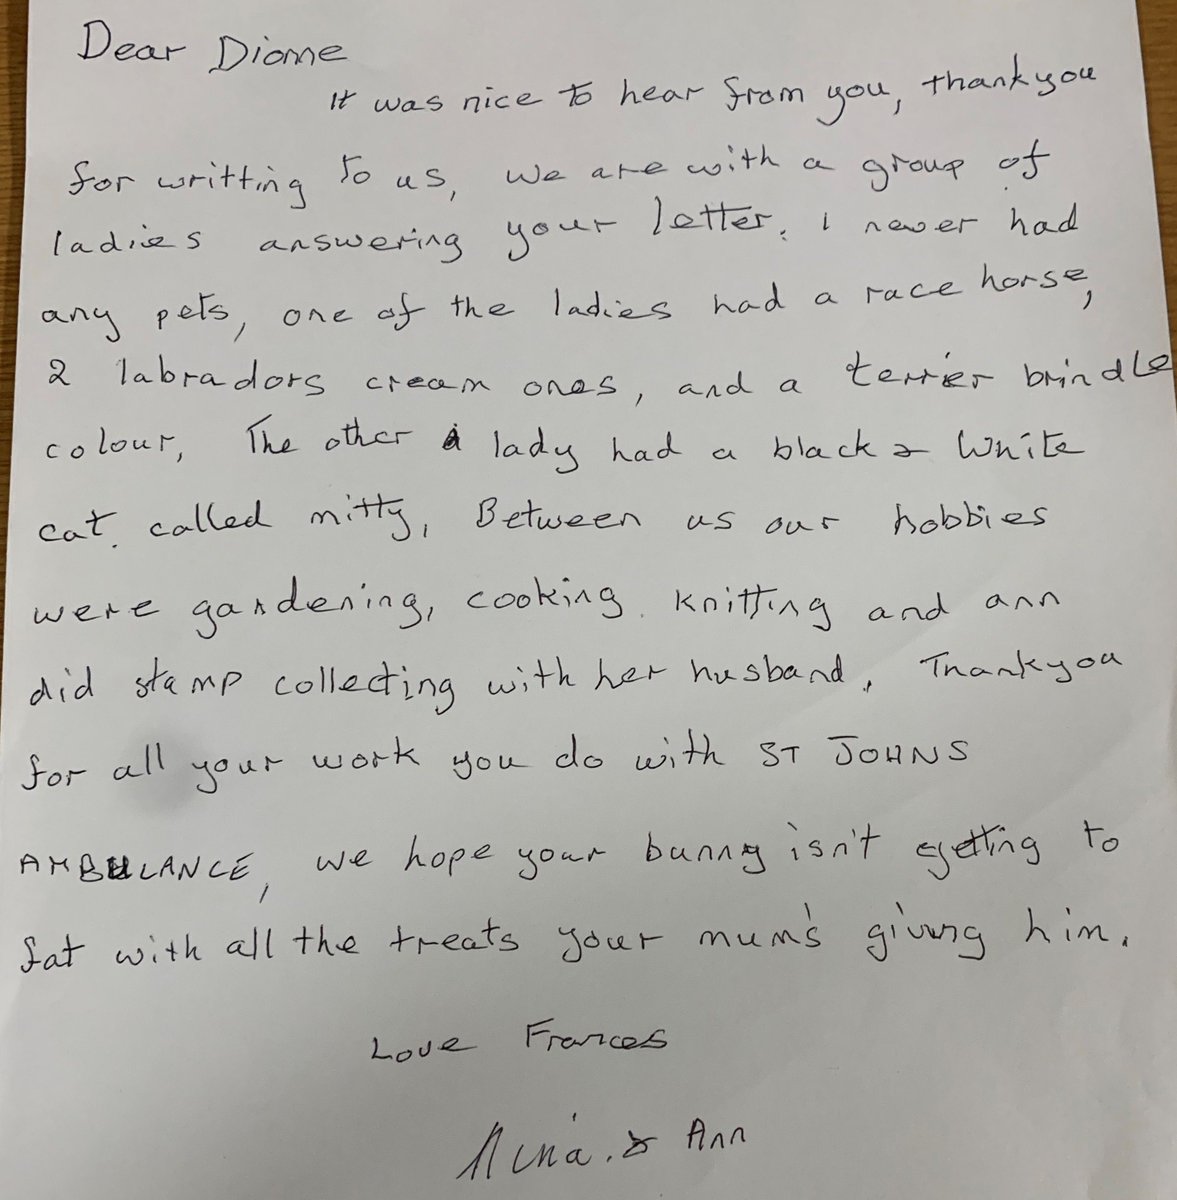 Dear Diome
It was nice to hear from you, thankyou
for writting to us, We are with a group of
ladies answering your letter. I never had
any pets, one of the ladies had a race horse,
2 labradors cream ones, and a terrier brindle
colour, The other lady had a black & White
cat. called mitty, Between us our hobbies
were gardening, cooking. Knitting and ann
did stamp collecting with her husband, Thankyou
for all your work you do with ST JOHNS
AMBULANCE, we hope your bunny isn't getting to
fat with all the treats your mum's giving him.
Love Frances
& Ann